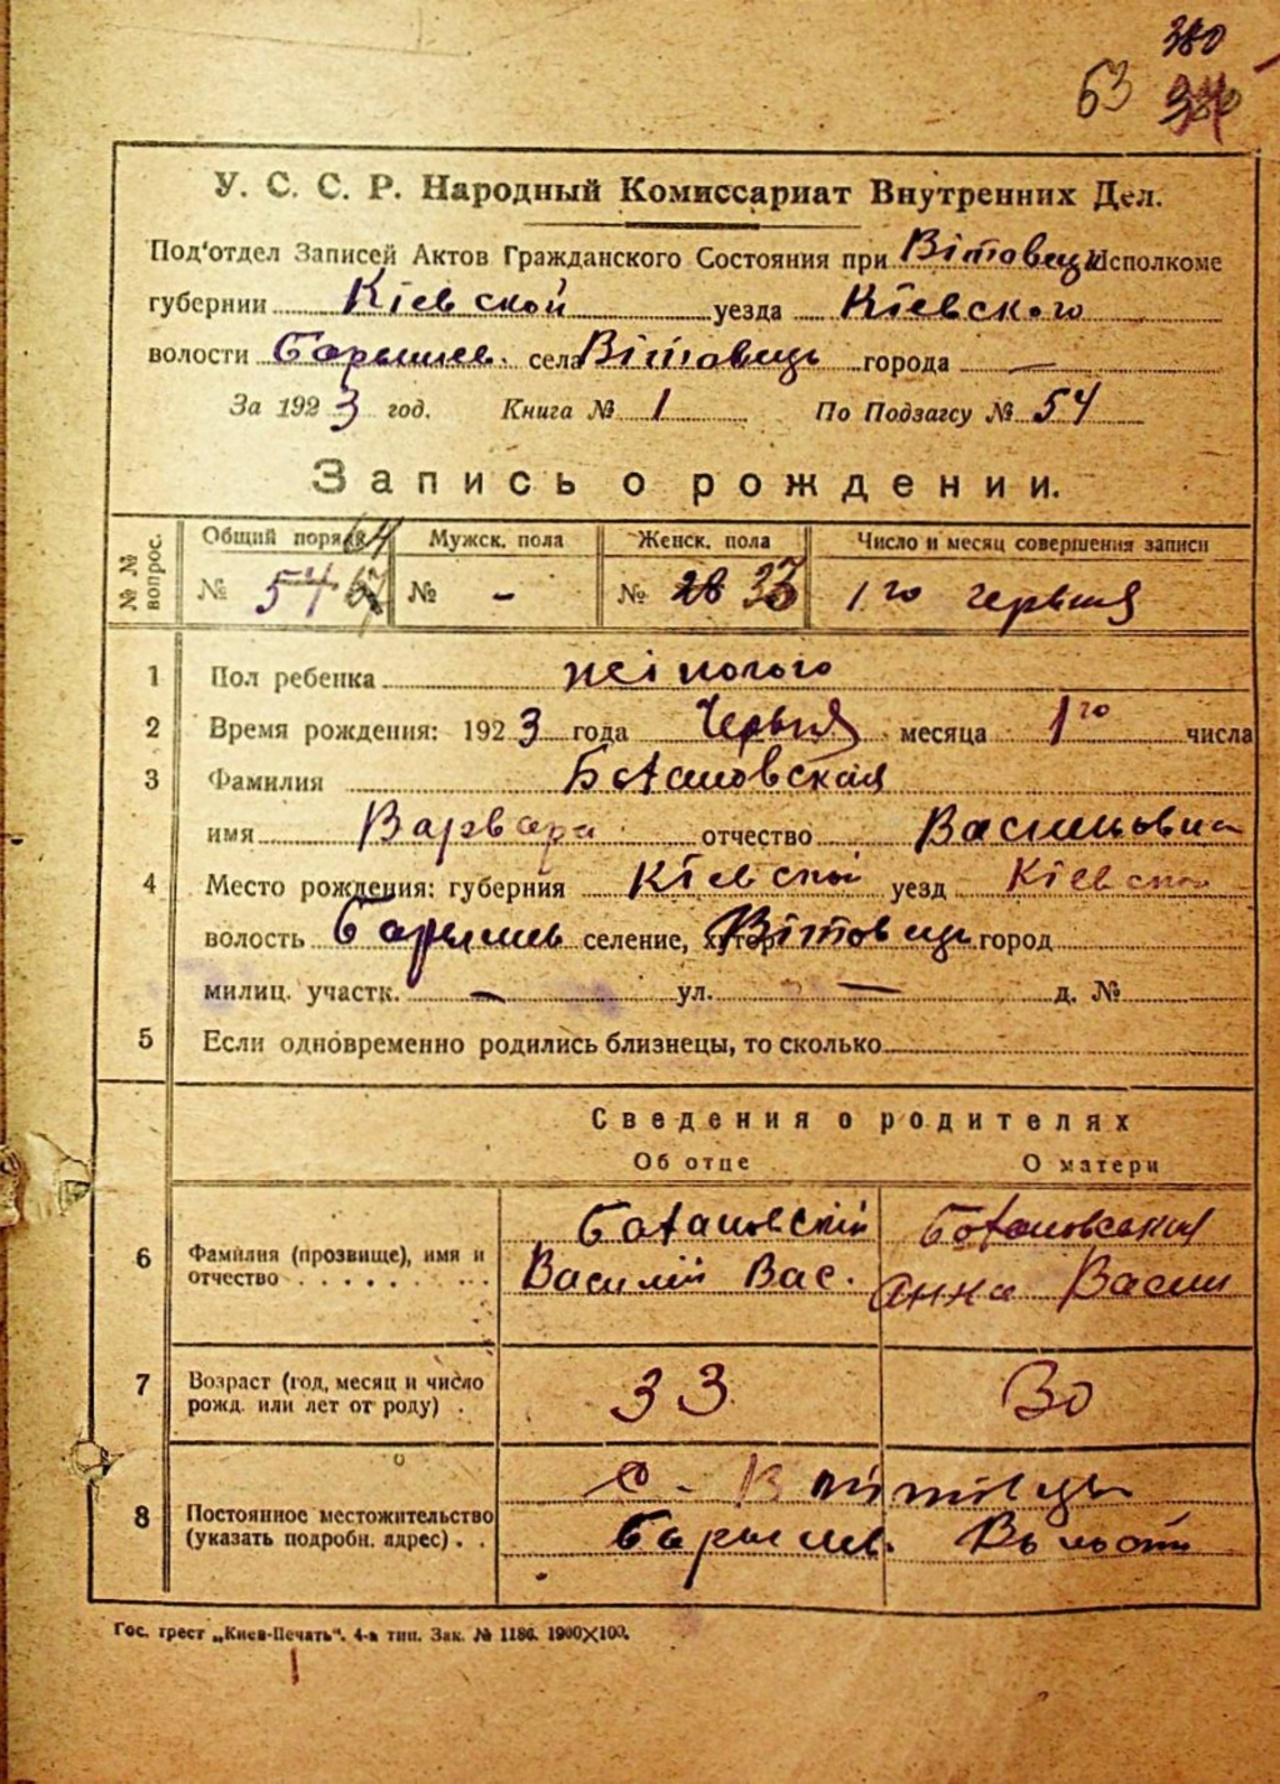 380
63
У. С. С. Р. Народный Комиссариат Внутренних Дел.
Под'отдел Записей Актов Гражданского Состояния при Вітовець Исполкоме
губернии Кіевской уезда Кіевского
волости Барышев. села Вітовець города —
За 1923 год. Книга № 1 По Подзагсу № 54
Запись о рождении.
№ № вопрос.
Общий поряд. 64 Мужск. пола Женск. пола Число и месяц совершения записи
№ 54 № - № 28 33 1го червня
1 Пол ребенка жіночого
2 Время рождения: 1923 года Червня месяца 1го числа
3 Фамилия
имя Варвара отчество Васильовна
4 Место рождения: губерния Кіевской уезд Кіевского
волость Барышев селение, хутор Вітовець город
милиц. участк. — ул. — д. №
5 Если одновременно родились близнецы, то сколько
Сведения о родителях
Об отце О матери
6 Фамилия (прозвище), имя и отчество
Василий Вас. Анна Васил
7 Возраст (год, месяц и число рожд. или лет от роду) . 33 30
8 Постоянное местожительство (указать подробн. адрес) . . с.
Барышев. Волости
Гос. трест „Киев-Печать“. 4-я тип. Зак. № 1186. 1900X100.